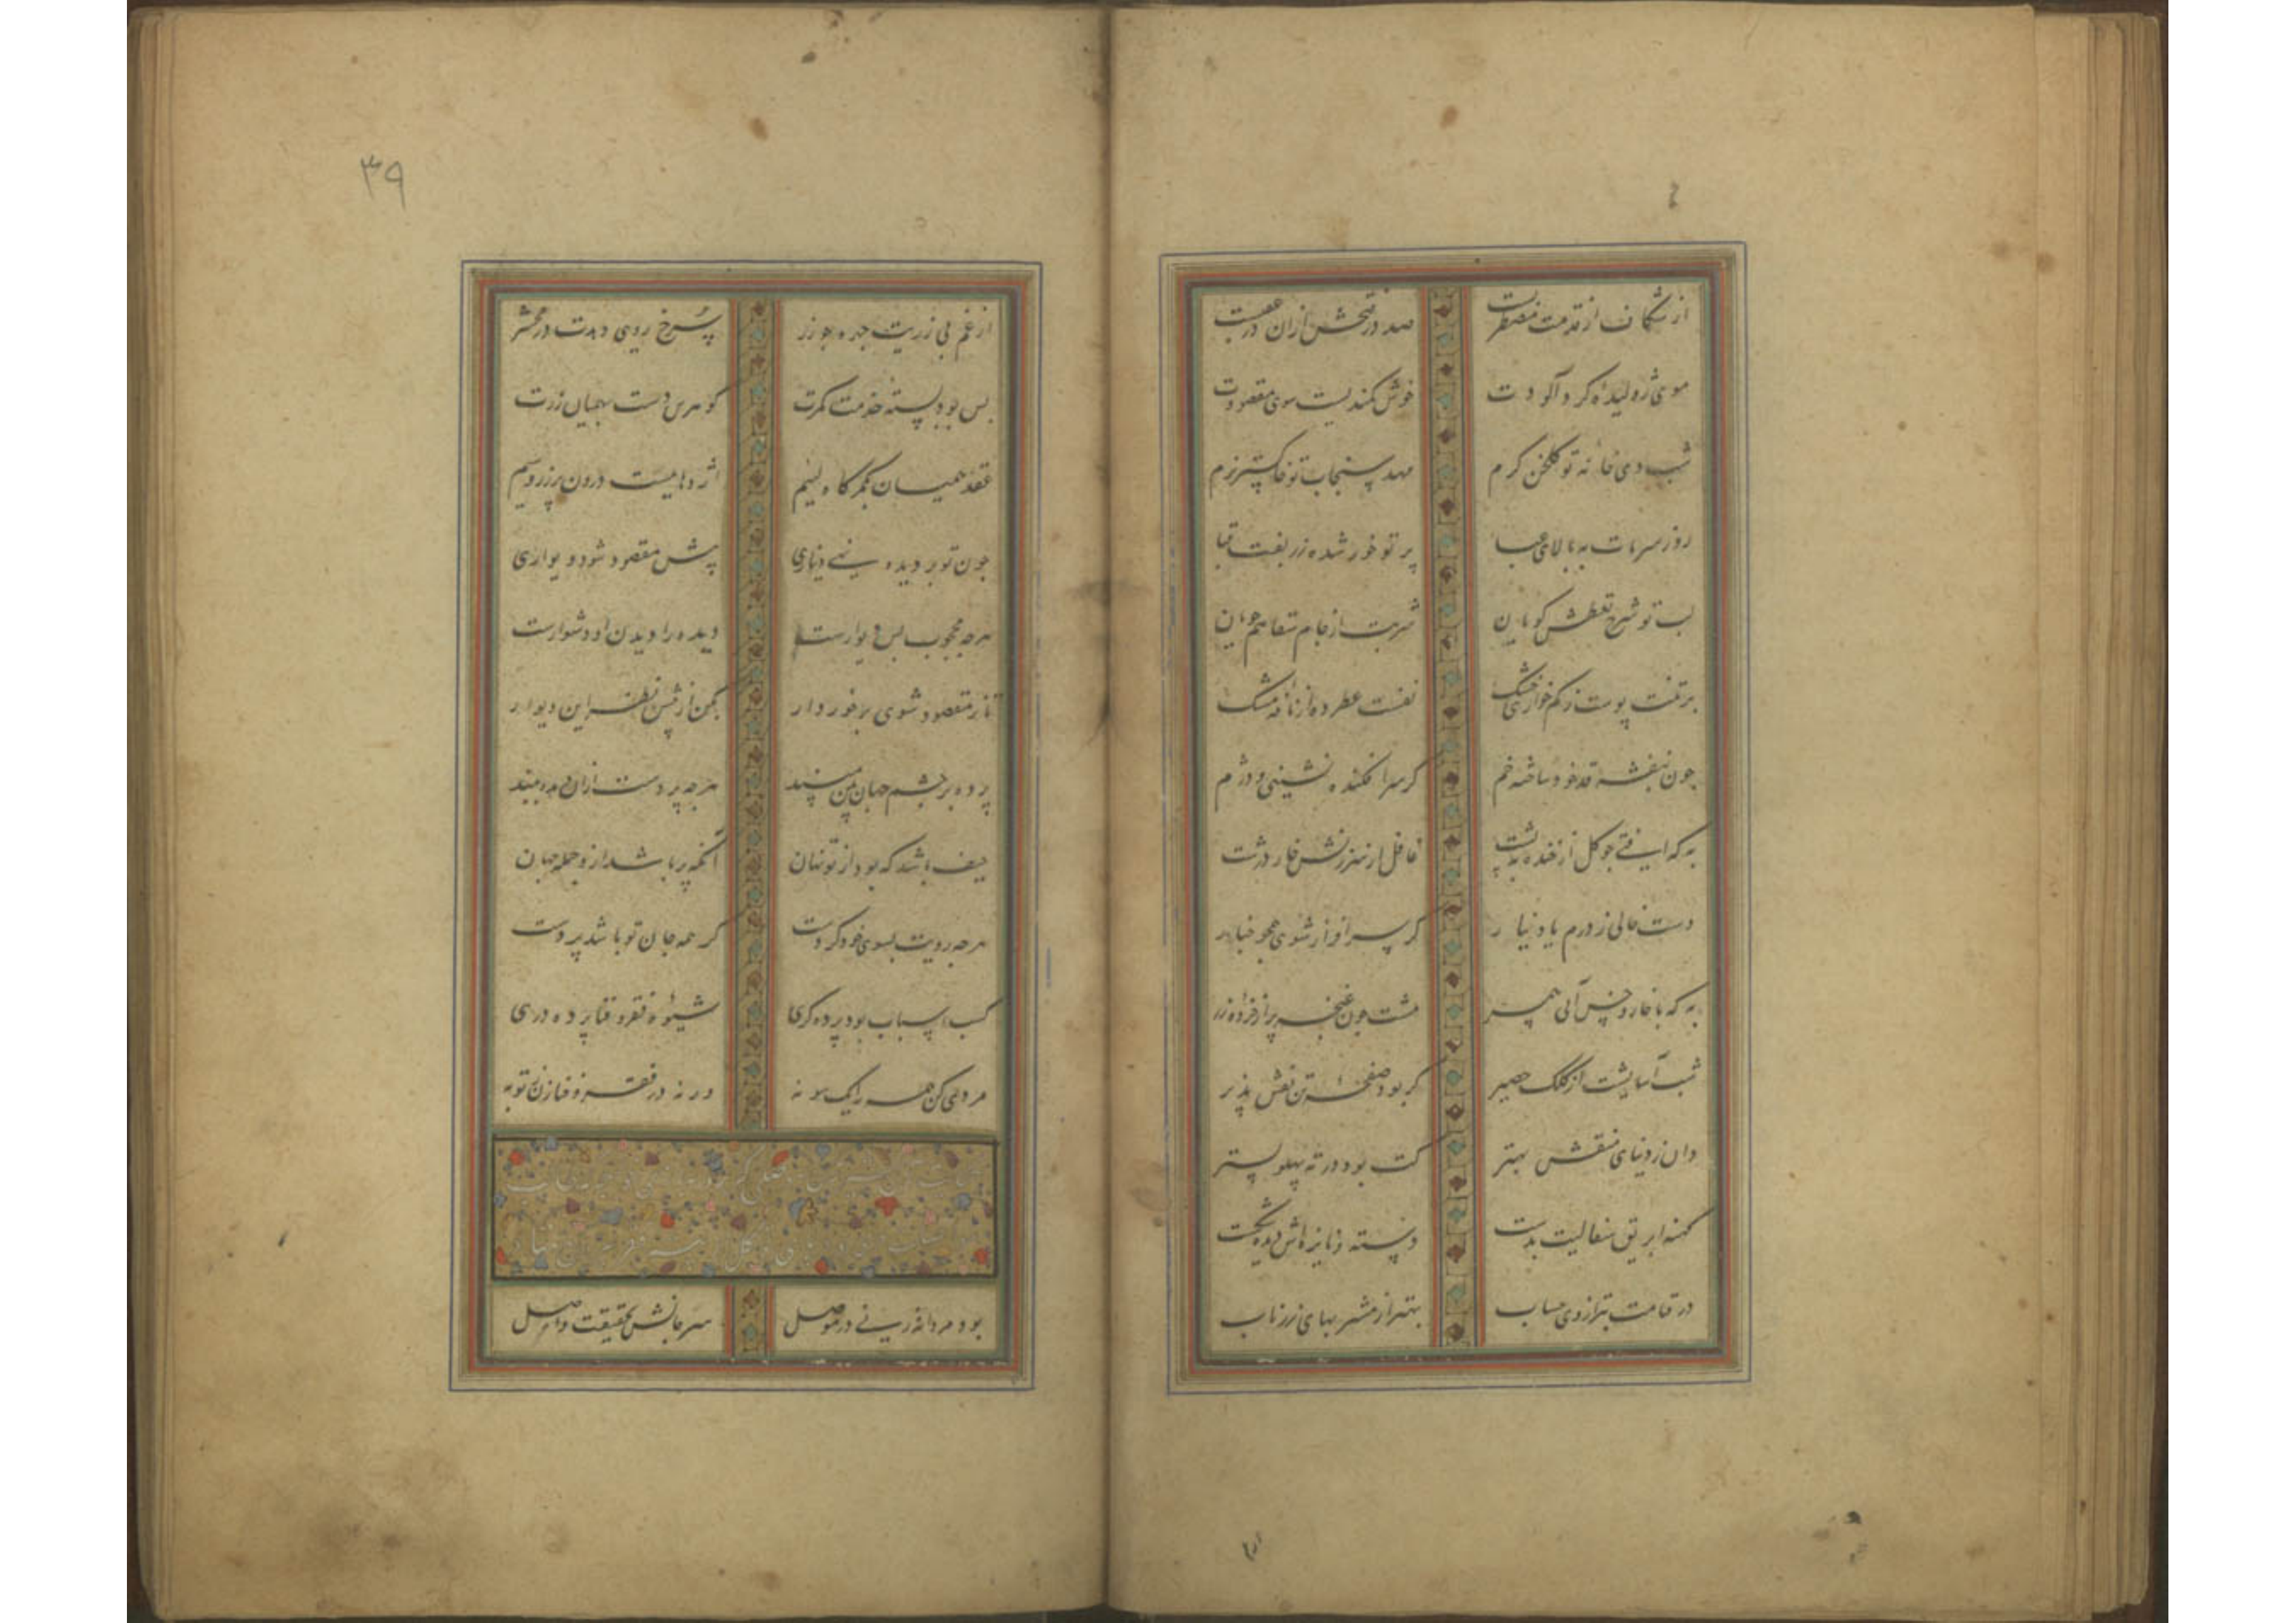 از شکاف از قدمت منقصت صد در فتحش ازان در عقبست
موی ژولیدهٔ کرد آلودت خوش کمندیست سوی مقصودت
شب دی خانهٔ تو کلخن کرم مهد سنجاب تو خاکستر نرم
روز سرمات به بالای عبا پرتو خور شده زربفت قبا
لب تو شرح تعطش کویان شربت از جام سقاهم جویان
بر تنت پوست ز کم خواری خشک نفست عطر ده از نافه مشک
چون بنفشه قد خود ساخته خم کر سرافکنده نشینی و دژم
به که افتی چو کل از خنده به پشت غافل از سرزنش خار درشت
دست خالی ز درم یا دینار کر سرافراز شوی همچو خیار
به که با خار و خس آیی همسر مشت چون غنچه پر از خرده زر
شب آسایشت از کلک حصیر کر بود صفحهٔ تن نقش پذیر
دان ز دنیای منقش بهتر کت بود در ته پهلو بستر
کهنه ابریق سفالیت بدست دسته و نایزه‌اش دیده شکست
در قیامت بترازوی حساب بهتر از مشربهای زر ناب
۳۹
از غم بی زریت چهره چو زر سرخ رویی دهدت در محشر
بس بود بسته خدمت کمرت کو مرس دست بهمیان زرت
عقد همیان کمرکاه لئیم اژدهاییست درون پر زر و سیم
چون تو بر دیده نهی دیناری پیش مقصود شود دیواری
هرچه محجوب پس دیوارست دیده را دیدن او دشوارست
تا ز مقصود شوی برخوردار بکن از پیش نظر این دیوار
پرده بر چشم جهان بین مپسند هرچه پردست ازان دیده ببند
حیف باشد که بود از تو نهان آنکه پر باشد ازو جمله جهان
هرچه رویت بسوی خود کردست کر همه جان تو باشد پردست
کسب اسباب بود پرده کری شیوهٔ فقر و فنا پرده دری
مردیی کن همه را یک سو نه ور نه در فقر و فنا زن توبه
بود مردانه زنی در موصل سر جانش بحقیقت واصل